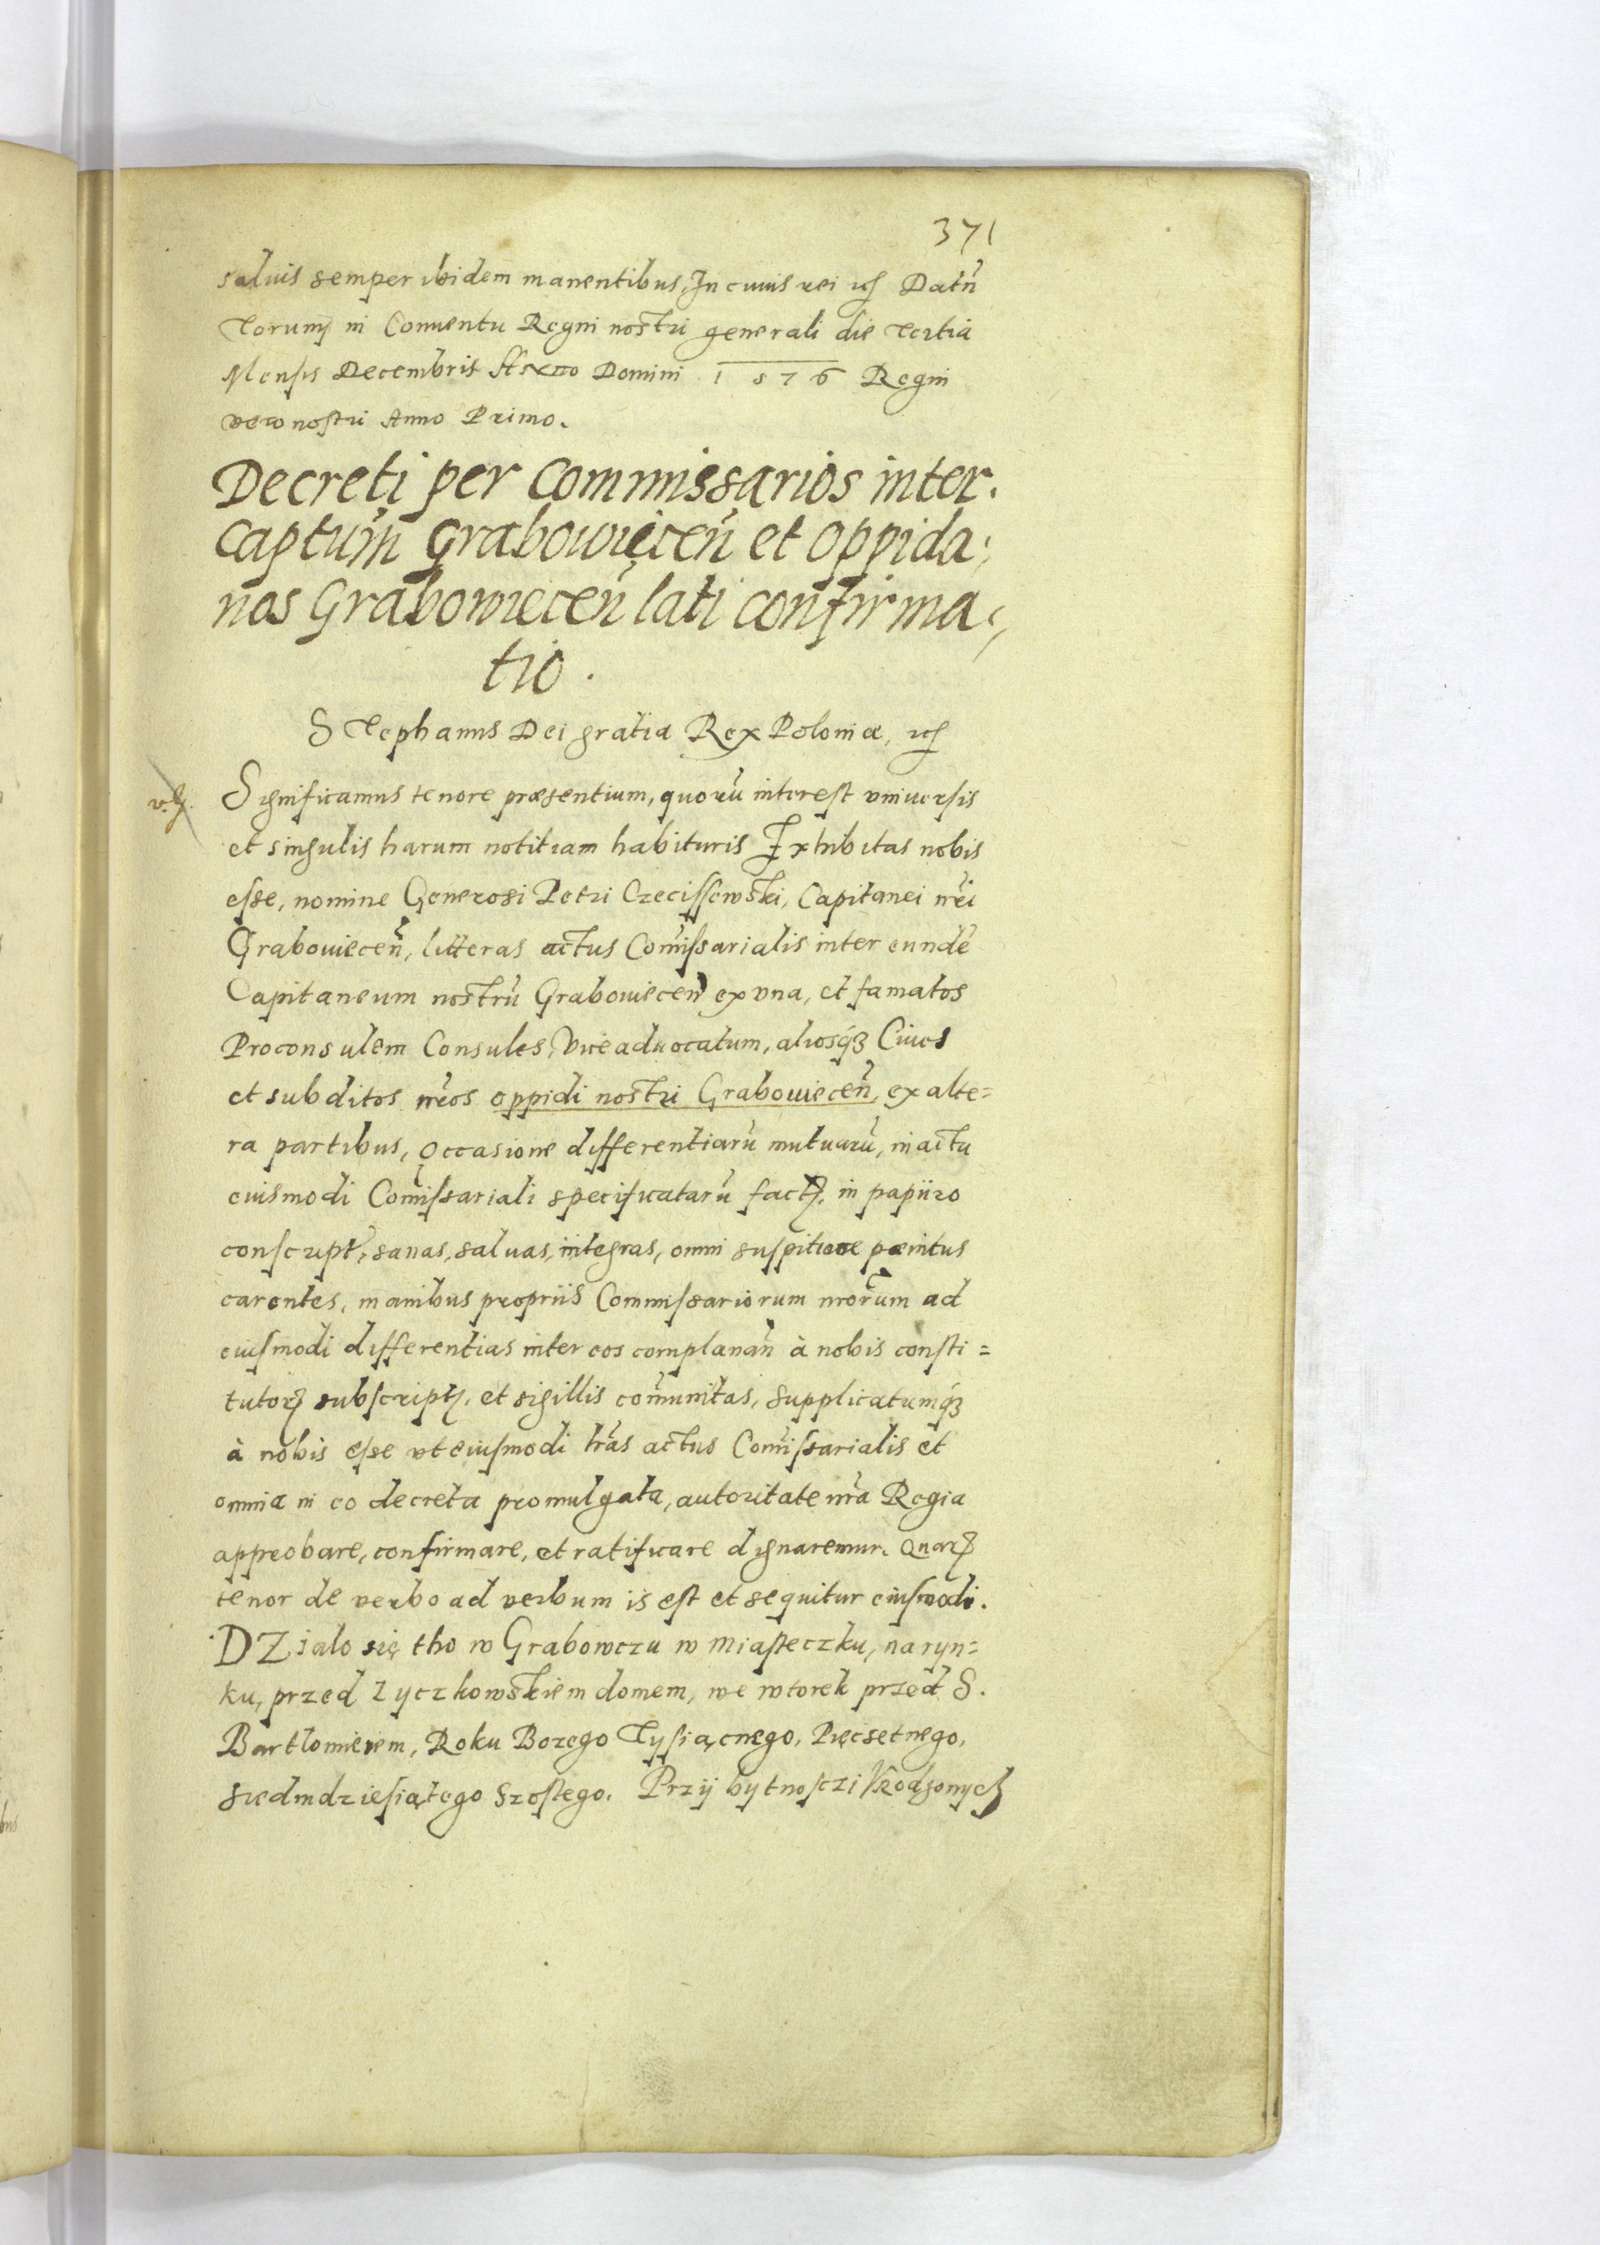 371
saluis semper ibidem manentibus, In cuius rei etc Datũ
Toruny in Conuentu Regni nostri generali die tertia
Mensis Decembris Anno Domini 1576 Regni
vero nostri Anno Primo.
Decreti per Commissarios inter.
Captum̃ Grabowiecen̄ et oppida;
nos Grabowiecen̄ lati confirma;
tio.
Stephanus Dei gratia Rex Poloniæ, etc
Significamus tenore præsentium, quorũ interest vniuersis
et singulis harum notitiam habituris Exhibitas nobis
esse, nomine Generosi Petri Czecissewski, Capitanei nr̃i
Grabouiecen̄, litteras actus Com̃issarialis inter eundẽ
Capitaneum nostrũ Grabouiecen̄ ex vna, et famatos
Proconsulem Consules, Viceaduocatum, aliosq̃ȝ Ciues
et subditos nr̃os oppidi nostri Grabouiecen̄, ex alte=
ra partibus, occasione differentiarũ mutuarũ, in actu
euismodi Com̃issariali specificatarũ fact. in papiiro
conscript, sanas, saluas, integras, omni suspitione pænitus
carentes, manibus propriis Commissariorum nr̃orum ad
eiusmodi differentias inter eos complanan̄ à nobis consti=
tutorꝝ subscript. et sigillis com̃unitas, supplicatumq̃ȝ
à nobis esse vt eiusmodi lr̃as actus Com̃issarialis et
omnia in eo decreta promulgata, autoritate nr̃a Regia
approbare, confirmare, et ratificare dignaremur. Quarꝝ
tenor de verbo ad verbum is est et sequitur eiusmodi.
DZialo się tho w Grabowczu w miasteczku, na ryn=
ku, przed Zyczkowskiem domem, we wtorek przed S.
Bartlomieiem, Roku Bozego Tysiącnego, Pięcsetnego,
siedmdziesiątego szostego. Przij bytnosczi Vrodzonych